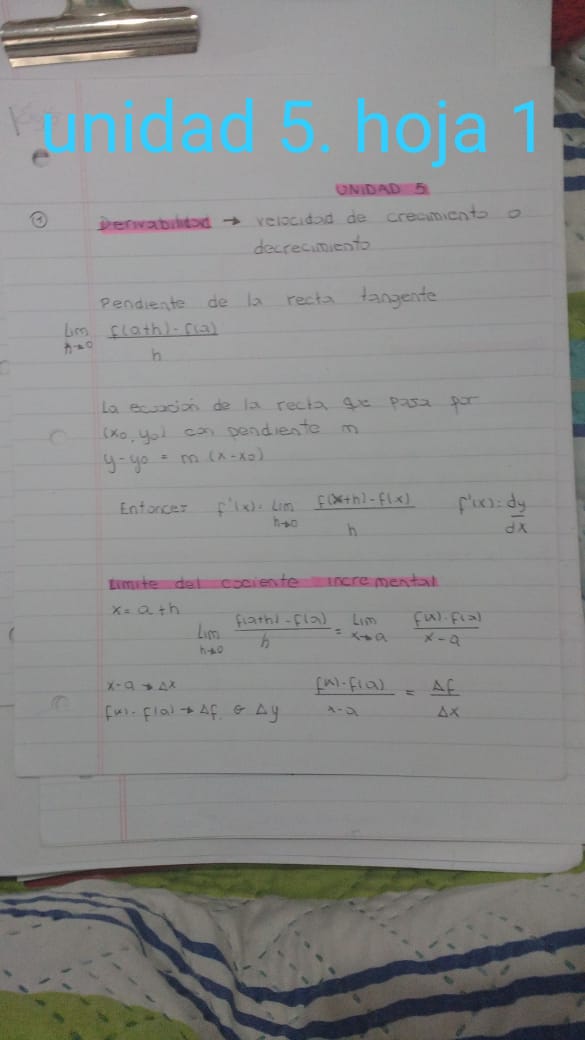 unidad 5. hoja 1
UNIDAD 5
① Derivabilidad → velocidad de crecimiento o
decrecimiento
Pendiente de la recta tangente
Lim h→0 f(a+h)-f(a) / h
La ecuación de la recta que pasa por
(x0, y0) con pendiente m
y-y0 = m (x-x0)
Entonces f'(x)= Lim h→0 f(x+h)-f(x) / h f'(x)= dy/dx
Limite del cociente incremental
x= a+h
Lim h→0 f(a+h)-f(a) / h = Lim x→a f(x)-f(a) / x-a
x-a → Δx f(x)-f(a) / x-a = Δf / Δx
f(x)-f(a) → Δf Δy